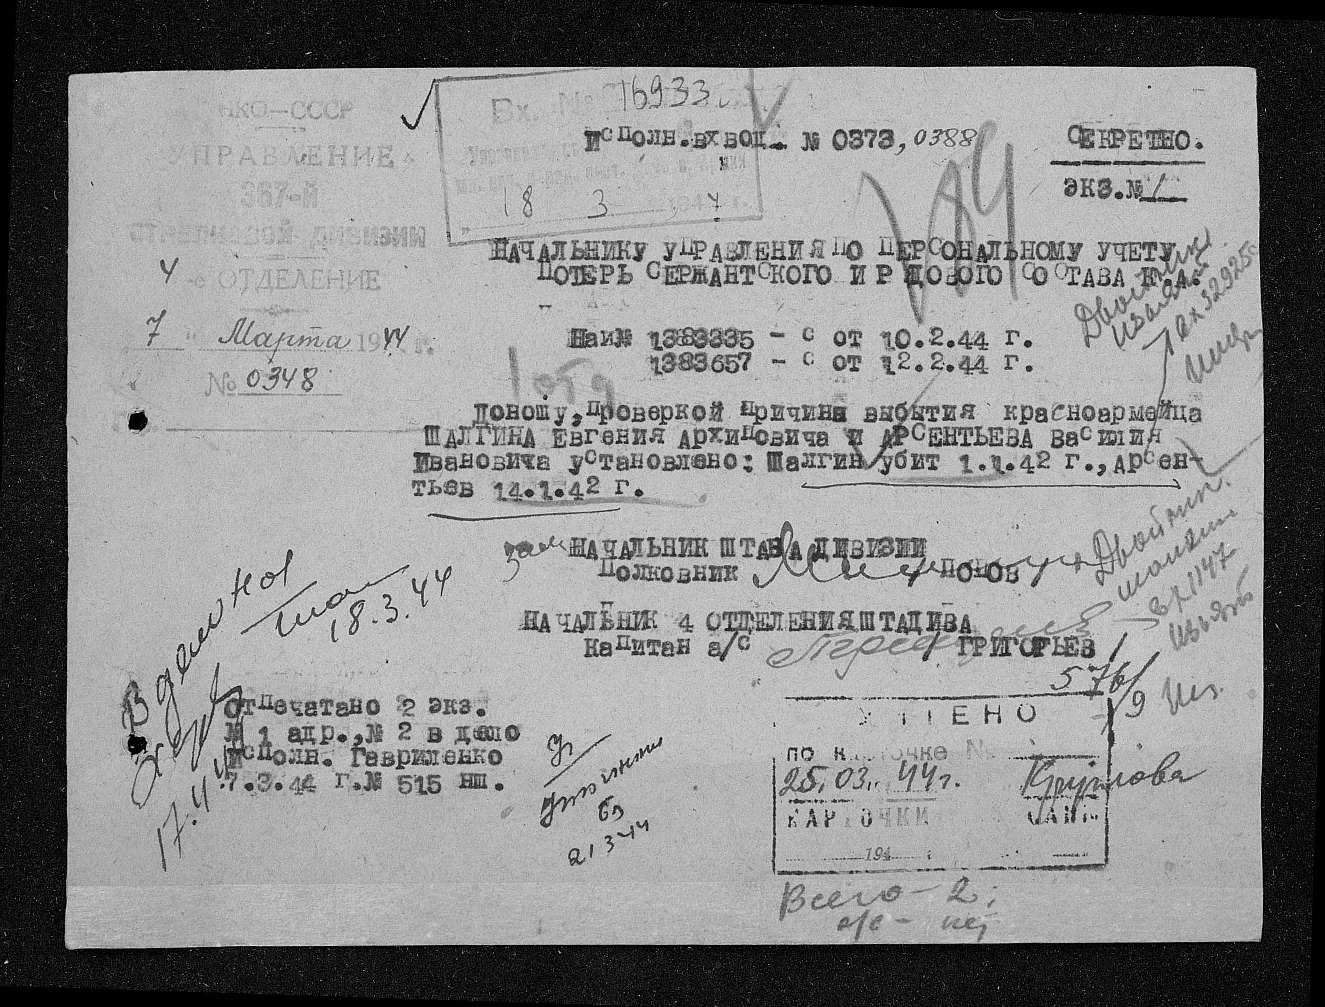 НКО—СССР
УПРАВЛЕНИЕ
367-й
СТРЕЛКОВОЙ ДИВИЗИИ
4
-е ОТДЕЛЕНИЕ
7 " Марта 1944 г.
№ 0348
Вх. № 16933
18 3 194 г.
Исполн.вхвод. № 0373, 0388
СЕКРЕТНО.
экз.№ 1
НАЧАЛЬНИКУ УПРАВЛЕНИЯ ПО ПЕРСОНАЛЬНОМУ УЧЕТУ
ПОТЕРЬ СЕРЖАНТСКОГО И РЯДОВОГО СОСТАВА К.А.
На№№ 1383335 - с от 10.2.44 г.
1383657 - с от 12.2.44 г.
Доношу, проверкой причины выбытия красноармейца
ШАЛГИНА Евгения Архиповича и АРСЕНТЬЕВА Василия
Ивановича установлено: Шалгин убит 1.1.42 г., Арсен-
тьев 14.1.42 г.
НАЧАЛЬНИК ШТАБА ДИВИЗИИ
Полковник / ПОПОВ
НАЧАЛЬНИК 4 ОТДЕЛЕНИЯ ШТАДИВА
Капитан а/с / ГРИГОРЬЕВ /
Отпечатано 2 экз.
№ 1 адр., № 2 в дело
Исполн. Гавриленко
7.3.44 г.№ 515 нш.
18.3.44
17.4.44
21 3 44
576/9
УЧТЕНО
по карточке №
25.03. 44г. Круглова
КАРТОЧКИ
194 г.
Всего - 2;
о/с - нет